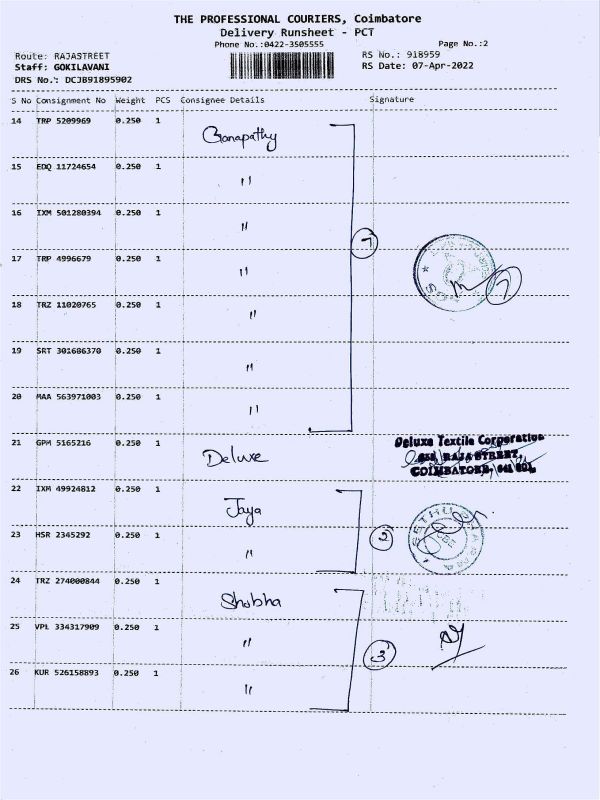 THE PROFESSIONAL COURIERS, Coimbatore
Delivery Runsheet - PCT
Phone No.:0422-3505555
Page No.:2
Route: RAJASTREET
RS No.: 918959
Staff: GOKILAVANI
RS Date: 07-Apr-2022
DRS No.: DCJB91895902
S No Consignment No Weight PCS Consignee Details Signature
14 TRP 5209969 0.250 1 Ganapathy
15 EDQ 11724654 0.250 1 "
16 IXM 501280394 0.250 1 "
7
17 TRP 4996679 0.250 1 "
7
18 TRZ 11020765 0.250 1 "
19 SRT 301686370 0.250 1 "
20 MAA 563971003 0.250 1 "
21 GPM 5165216 0.250 1 Deluxe
Deluxe Textile Corporation
RAJA STREET,
COIMBATORE, 641 001.
22 IXM 49924812 0.250 1 Jaya
23 HSR 2345292 0.250 1 "
2
24 TRZ 274000844 0.250 1 Shobha
25 VPL 334317909 0.250 1 "
3
26 KUR 526158893 0.250 1 "